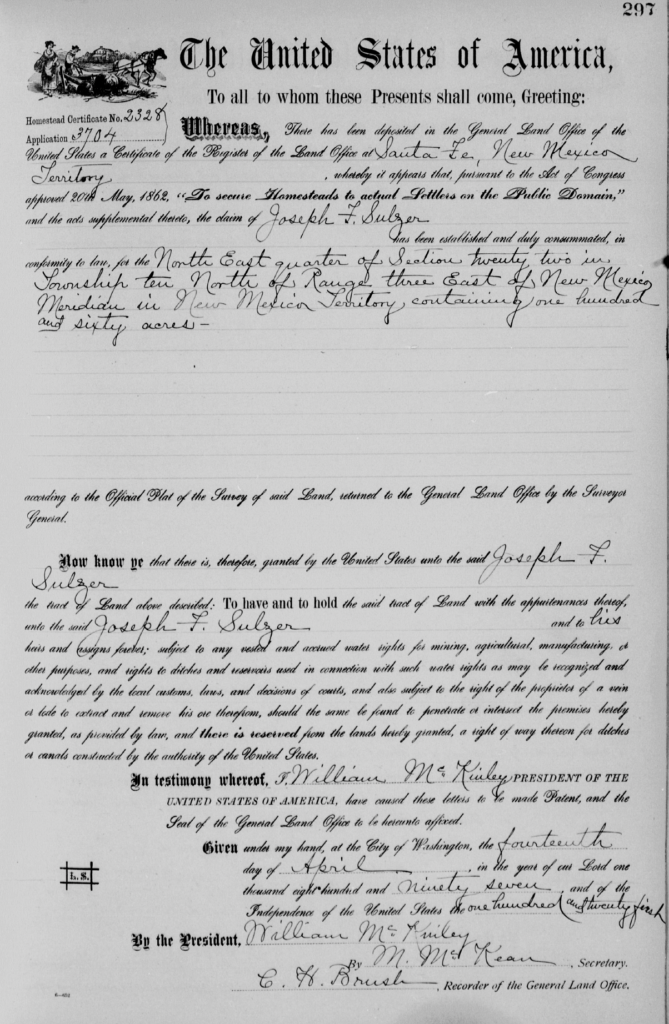 297
The United States of America,
To all to whom these Presents shall come, Greeting:
Homestead Certificate No. 2328
Application 3704
Whereas, There has been deposited in the General Land Office of the
United States a Certificate of the Register of the Land Office at Santa Fe, New Mexico
Territory, whereby it appears that, pursuant to the Act of Congress
approved 20th May, 1862, "To secure Homesteads to actual Settlers on the Public Domain,"
and the acts supplemental thereto, the claim of Joseph F. Sulzer
has been established and duly consummated, in
conformity to law, for the North East quarter of Section twenty two in
Township ten North of Range three East of New Mexico
Meridian in New Mexico Territory containing one hundred
and sixty acres -
according to the Official Plat of the Survey of said Land, returned to the General Land Office by the Surveyor
General.
Now know ye that there is, therefore, granted by the United States unto the said Joseph F.
Sulzer
the tract of Land above described: To have and to hold the said tract of Land with the appurtenances thereof,
unto the said Joseph F. Sulzer and to his
heirs and assigns forever; subject to any vested and accrued water rights for mining, agricultural, manufacturing, or
other purposes, and rights to ditches and reservoirs used in connection with such water rights as may be recognized and
acknowledged by the local customs, laws, and decisions of courts, and also subject to the right of the proprietor of a vein
or lode to extract and remove his ore therefrom, should the same be found to penetrate or intersect the premises hereby
granted, as provided by law, and there is reserved from the lands hereby granted, a right of way thereon for ditches
or canals constructed by the authority of the United States.
In testimony whereof, I, William McKinley, PRESIDENT OF THE
UNITED STATES OF AMERICA, have caused these letters to be made Patent, and the
Seal of the General Land Office to be hereunto affixed.
Given under my hand, at the City of Washington, the fourteenth
day of April, in the year of our Lord one
thousand eight hundred and ninety seven, and of the
Independence of the United States the one hundred and twenty first
L.S.
By the President, William McKinley
By M. McKean, Secretary.
C. H. Brush, Recorder of the General Land Office.